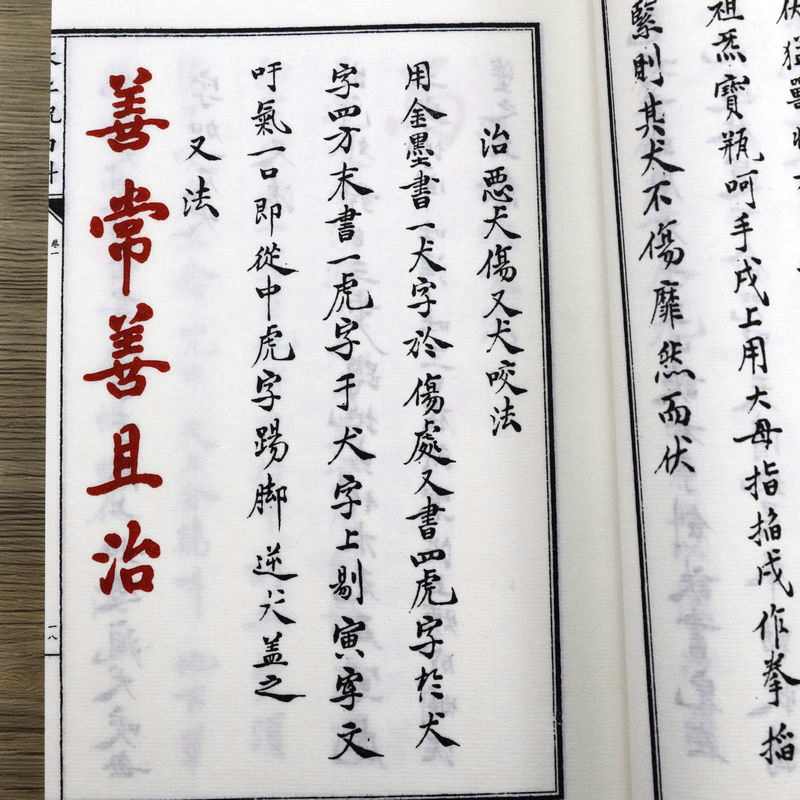 祖炁寶瓶呵手戌上用大母指掐戌作拳掐
緊則其犬不傷靡然而伏
治惡犬傷又犬咬法
用金墨書一犬字於傷處又書四虎字於犬
字四方末書一虎字于犬字上剔寅字文
吁氣一口即從中虎字踢脚逆犬盖之
又法
善常善且治
卷一
一八